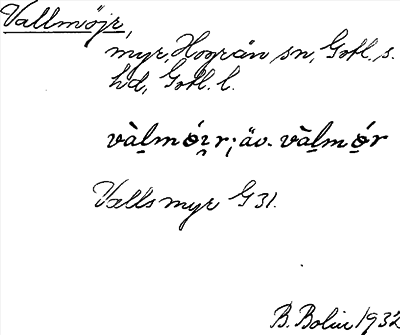 Vallmöjr,
myr, Hogrän sn, Gotl. s.
hd, Gotl. l.
vàl̠mǿɪ̯r; äv. vàl̠mǿ̠r
Vallsmyr G 31.
B. Bolin 1932